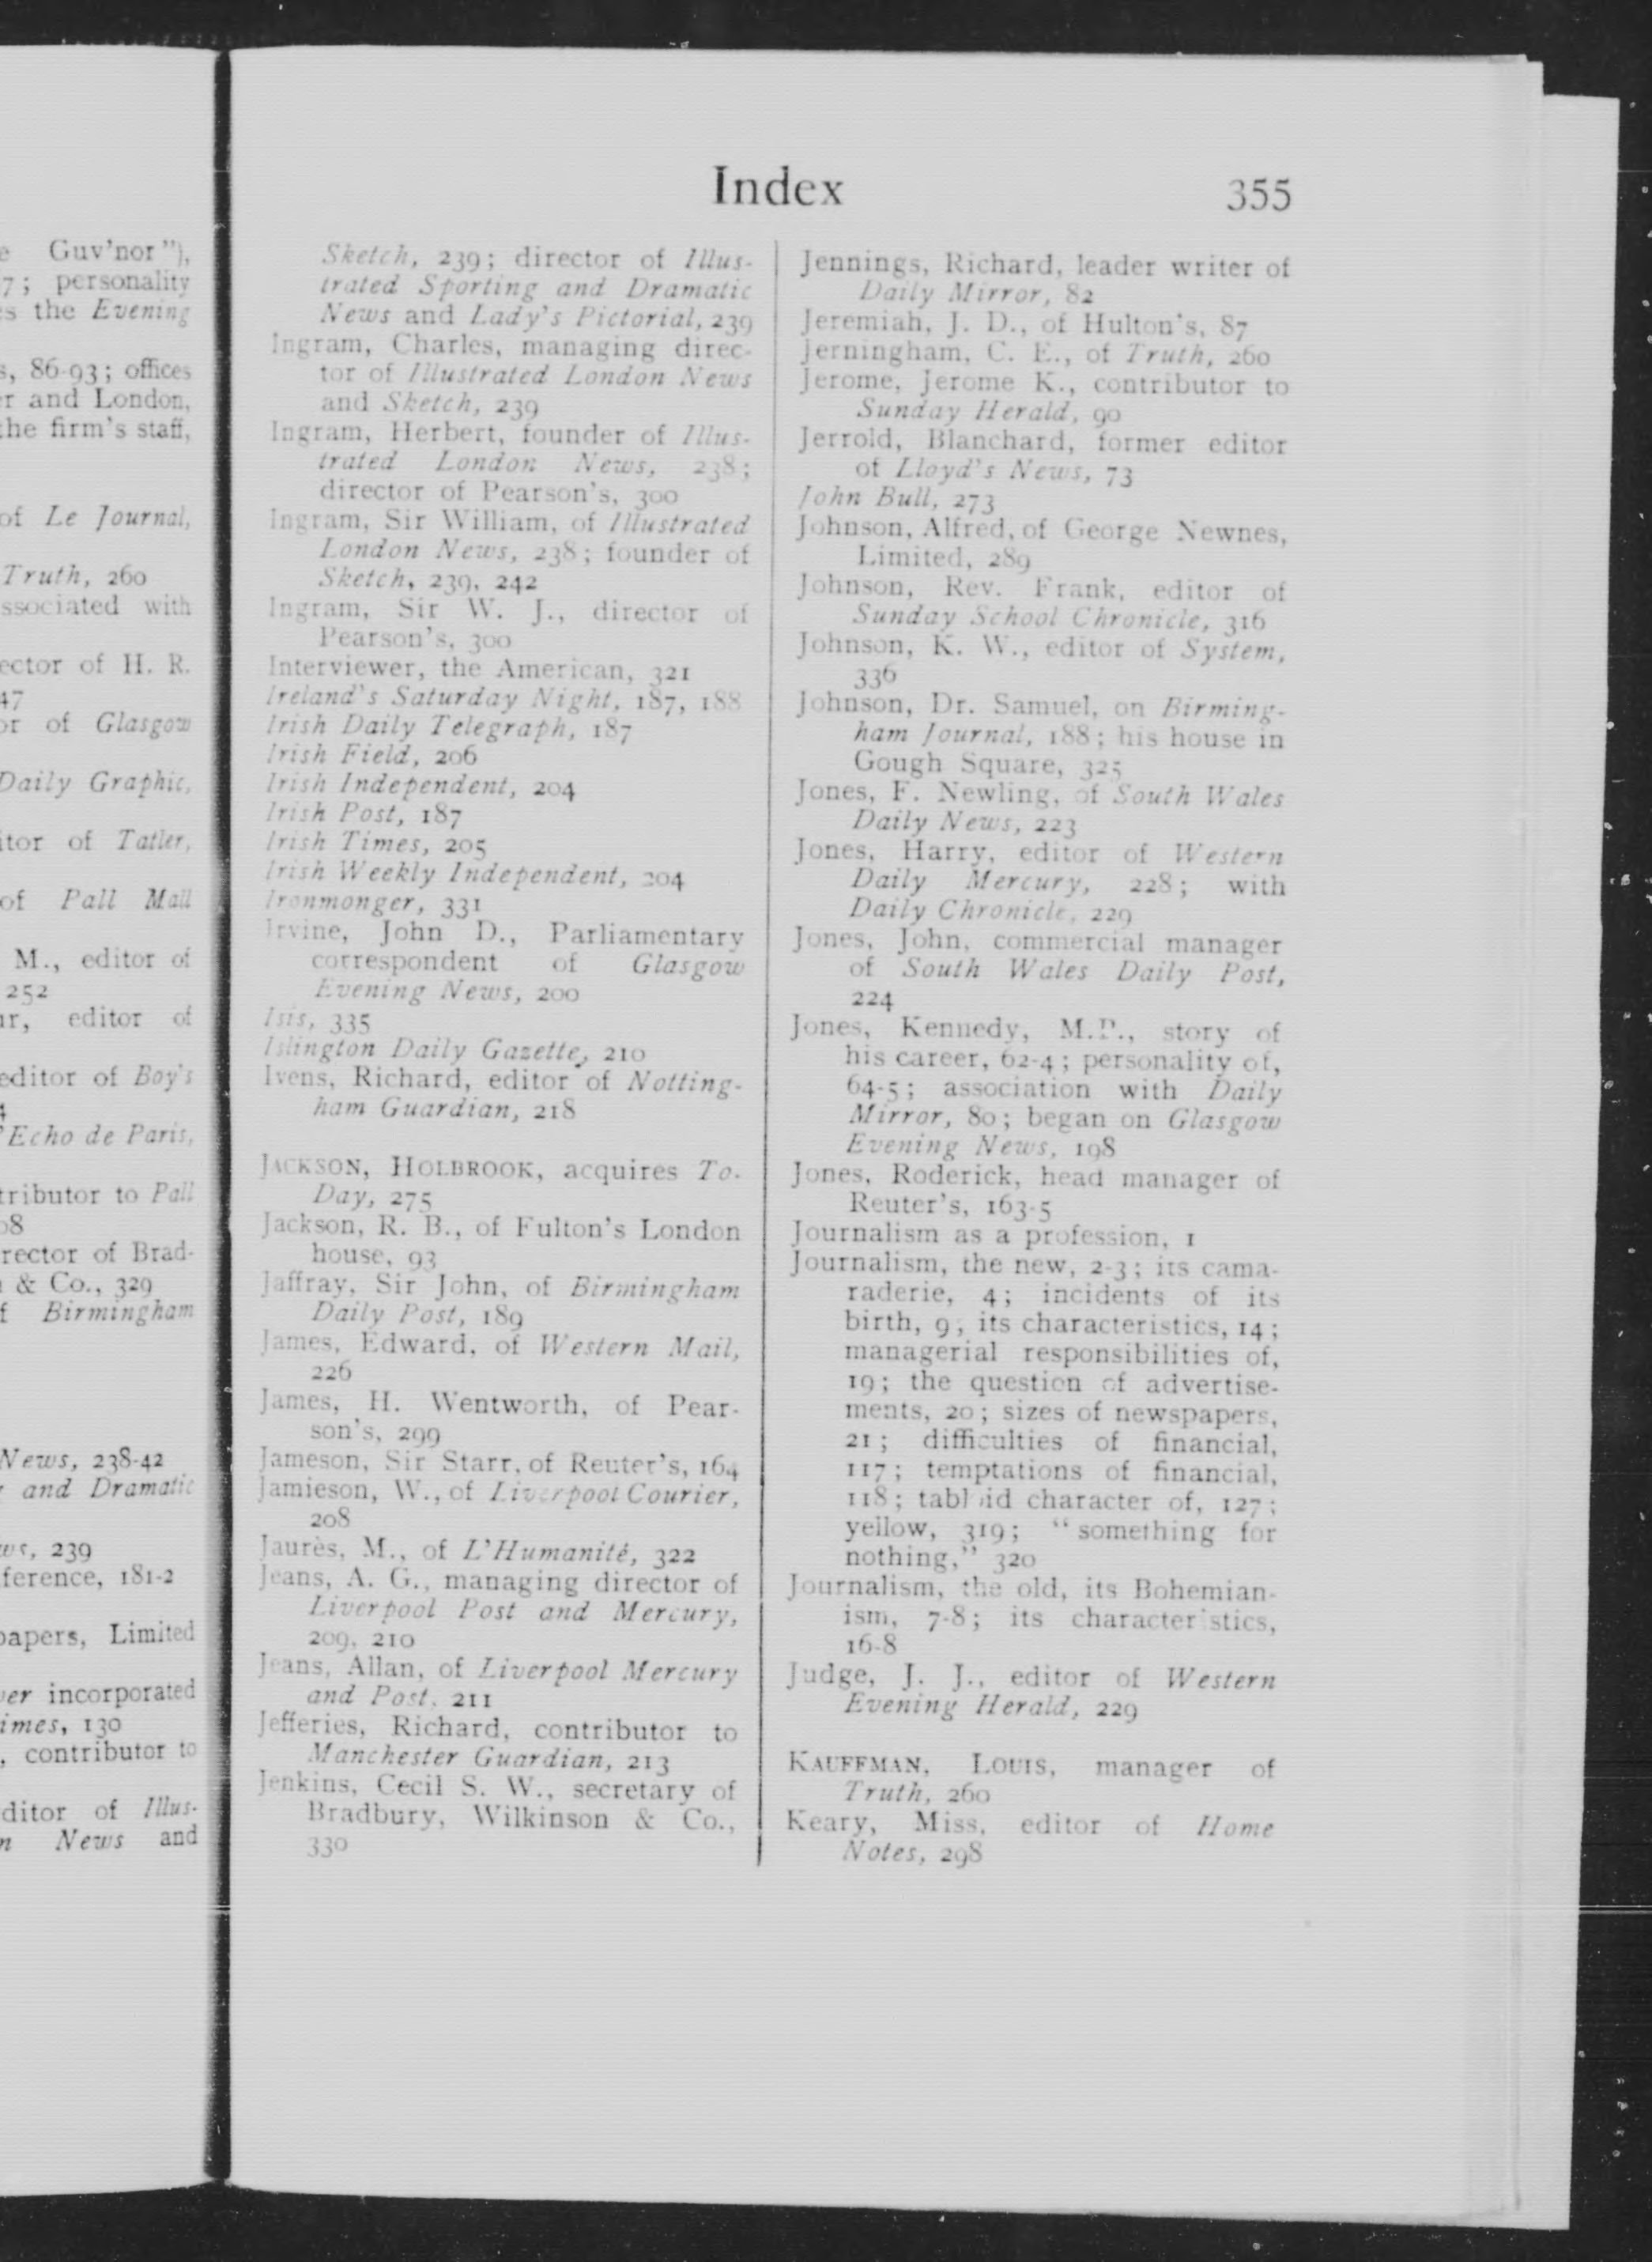 e Guv'nor"),
7; personality
s the Evening
s, 86-93; offices
er and London,
the firm's staff,
of Le Journal,
Truth, 260
ssociated with
ector of H. R.
47
or of Glasgow
Daily Graphic,
itor of Tatler,
of Pall Mall
M., editor of
252
ur, editor of
editor of Boy's
4
Echo de Paris,
tributor to Pall
08
rector of Brad-
& Co., 329
f Birmingham
News, 238-42
and Dramatic
ws, 239
ference, 181-2
papers, Limited
er incorporated
imes, 130
, contributor to
ditor of Illus-
n News and
Index 355
Sketch, 239; director of Illus-
trated Sporting and Dramatic
News and Lady's Pictorial, 239
Ingram, Charles, managing direc-
tor of Illustrated London News
and Sketch, 239
Ingram, Herbert, founder of Illus-
trated London News, 238;
director of Pearson's, 300
Ingram, Sir William, of Illustrated
London News, 238; founder of
Sketch, 239, 242
Ingram, Sir W. J., director of
Pearson's, 300
Interviewer, the American, 321
Ireland's Saturday Night, 187, 188
Irish Daily Telegraph, 187
Irish Field, 206
Irish Independent, 204
Irish Post, 187
Irish Times, 205
Irish Weekly Independent, 204
Ironmonger, 331
Irvine, John D., Parliamentary
correspondent of Glasgow
Evening News, 200
Isis, 335
Islington Daily Gazette, 210
Ivens, Richard, editor of Notting-
ham Guardian, 218
JACKSON, HOLBROOK, acquires To-
Day, 275
Jackson, R. B., of Fulton's London
house, 93
Jaffray, Sir John, of Birmingham
Daily Post, 189
James, Edward, of Western Mail,
226
James, H. Wentworth, of Pear-
son's, 299
Jameson, Sir Starr, of Reuter's, 164
Jamieson, W., of Liverpool Courier,
208
Jaurès, M., of L'Humanité, 322
Jeans, A. G., managing director of
Liverpool Post and Mercury,
209, 210
Jeans, Allan, of Liverpool Mercury
and Post, 211
Jefferies, Richard, contributor to
Manchester Guardian, 213
Jenkins, Cecil S. W., secretary of
Bradbury, Wilkinson & Co.,
330
Jennings, Richard, leader writer of
Daily Mirror, 82
Jeremiah, J. D., of Hulton's, 87
Jerningham, C. E., of Truth, 260
Jerome, Jerome K., contributor to
Sunday Herald, 90
Jerrold, Blanchard, former editor
of Lloyd's News, 73
John Bull, 273
Johnson, Alfred, of George Newnes,
Limited, 289
Johnson, Rev. Frank, editor of
Sunday School Chronicle, 316
Johnson, K. W., editor of System,
336
Johnson, Dr. Samuel, on Birming-
ham Journal, 188; his house in
Gough Square, 325
Jones, F. Newling, of South Wales
Daily News, 223
Jones, Harry, editor of Western
Daily Mercury, 228; with
Daily Chronicle, 229
Jones, John, commercial manager
of South Wales Daily Post,
224
Jones, Kennedy, M.P., story of
his career, 62-4; personality of,
64-5; association with Daily
Mirror, 80; began on Glasgow
Evening News, 198
Jones, Roderick, head manager of
Reuter's, 163-5
Journalism as a profession, 1
Journalism, the new, 2-3; its cama-
raderie, 4; incidents of its
birth, 9; its characteristics, 14;
managerial responsibilities of,
19; the question of advertise-
ments, 20; sizes of newspapers,
21; difficulties of financial,
117; temptations of financial,
118; tabloid character of, 127;
yellow, 319; "something for
nothing," 320
Journalism, the old, its Bohemian-
ism, 7-8; its characteristics,
16-8
Judge, J. J., editor of Western
Evening Herald, 229
KAUFFMAN, LOUIS, manager of
Truth, 260
Keary, Miss, editor of Home
Notes, 298